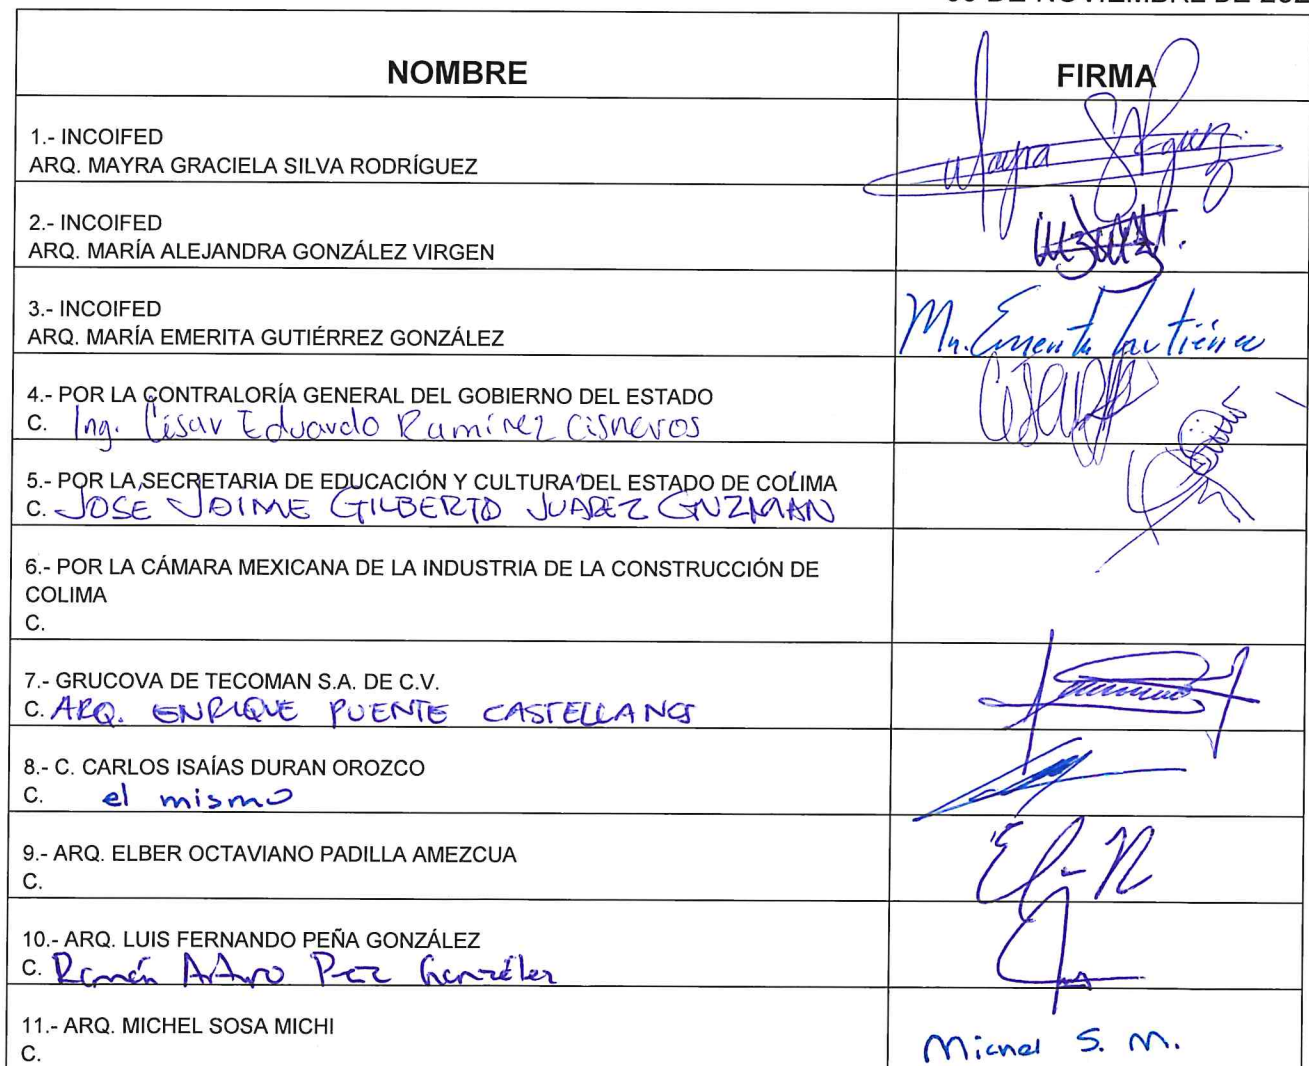 DE NOVIEMBRE DE
NOMBRE
FIRMA
1.- INCOIFED
ARQ. MAYRA GRACIELA SILVA RODRÍGUEZ
Mayra
2.- INCOIFED
ARQ. MARÍA ALEJANDRA GONZÁLEZ VIRGEN
3.- INCOIFED
ARQ. MARÍA EMERITA GUTIÉRREZ GONZÁLEZ
4.- POR LA CONTRALORÍA GENERAL DEL GOBIERNO DEL ESTADO
C. Ing. César Eduardo Ramírez Cisneros
5.- POR LA SECRETARIA DE EDUCACIÓN Y CULTURA DEL ESTADO DE COLIMA
C. JOSE JAIME GILBERTO JUAREZ GUZMAN
6.- POR LA CÁMARA MEXICANA DE LA INDUSTRIA DE LA CONSTRUCCIÓN DE
COLIMA
C.
7.- GRUCOVA DE TECOMAN S.A. DE C.V.
C. ARQ. ENRIQUE PUENTE CASTELLANOS
8.- C. CARLOS ISAÍAS DURAN OROZCO
C. el mismo
9.- ARQ. ELBER OCTAVIANO PADILLA AMEZCUA
C.
10.- ARQ. LUIS FERNANDO PEÑA GONZÁLEZ
C. Ramón González
11.- ARQ. MICHEL SOSA MICHI
C.
Michel S. M.